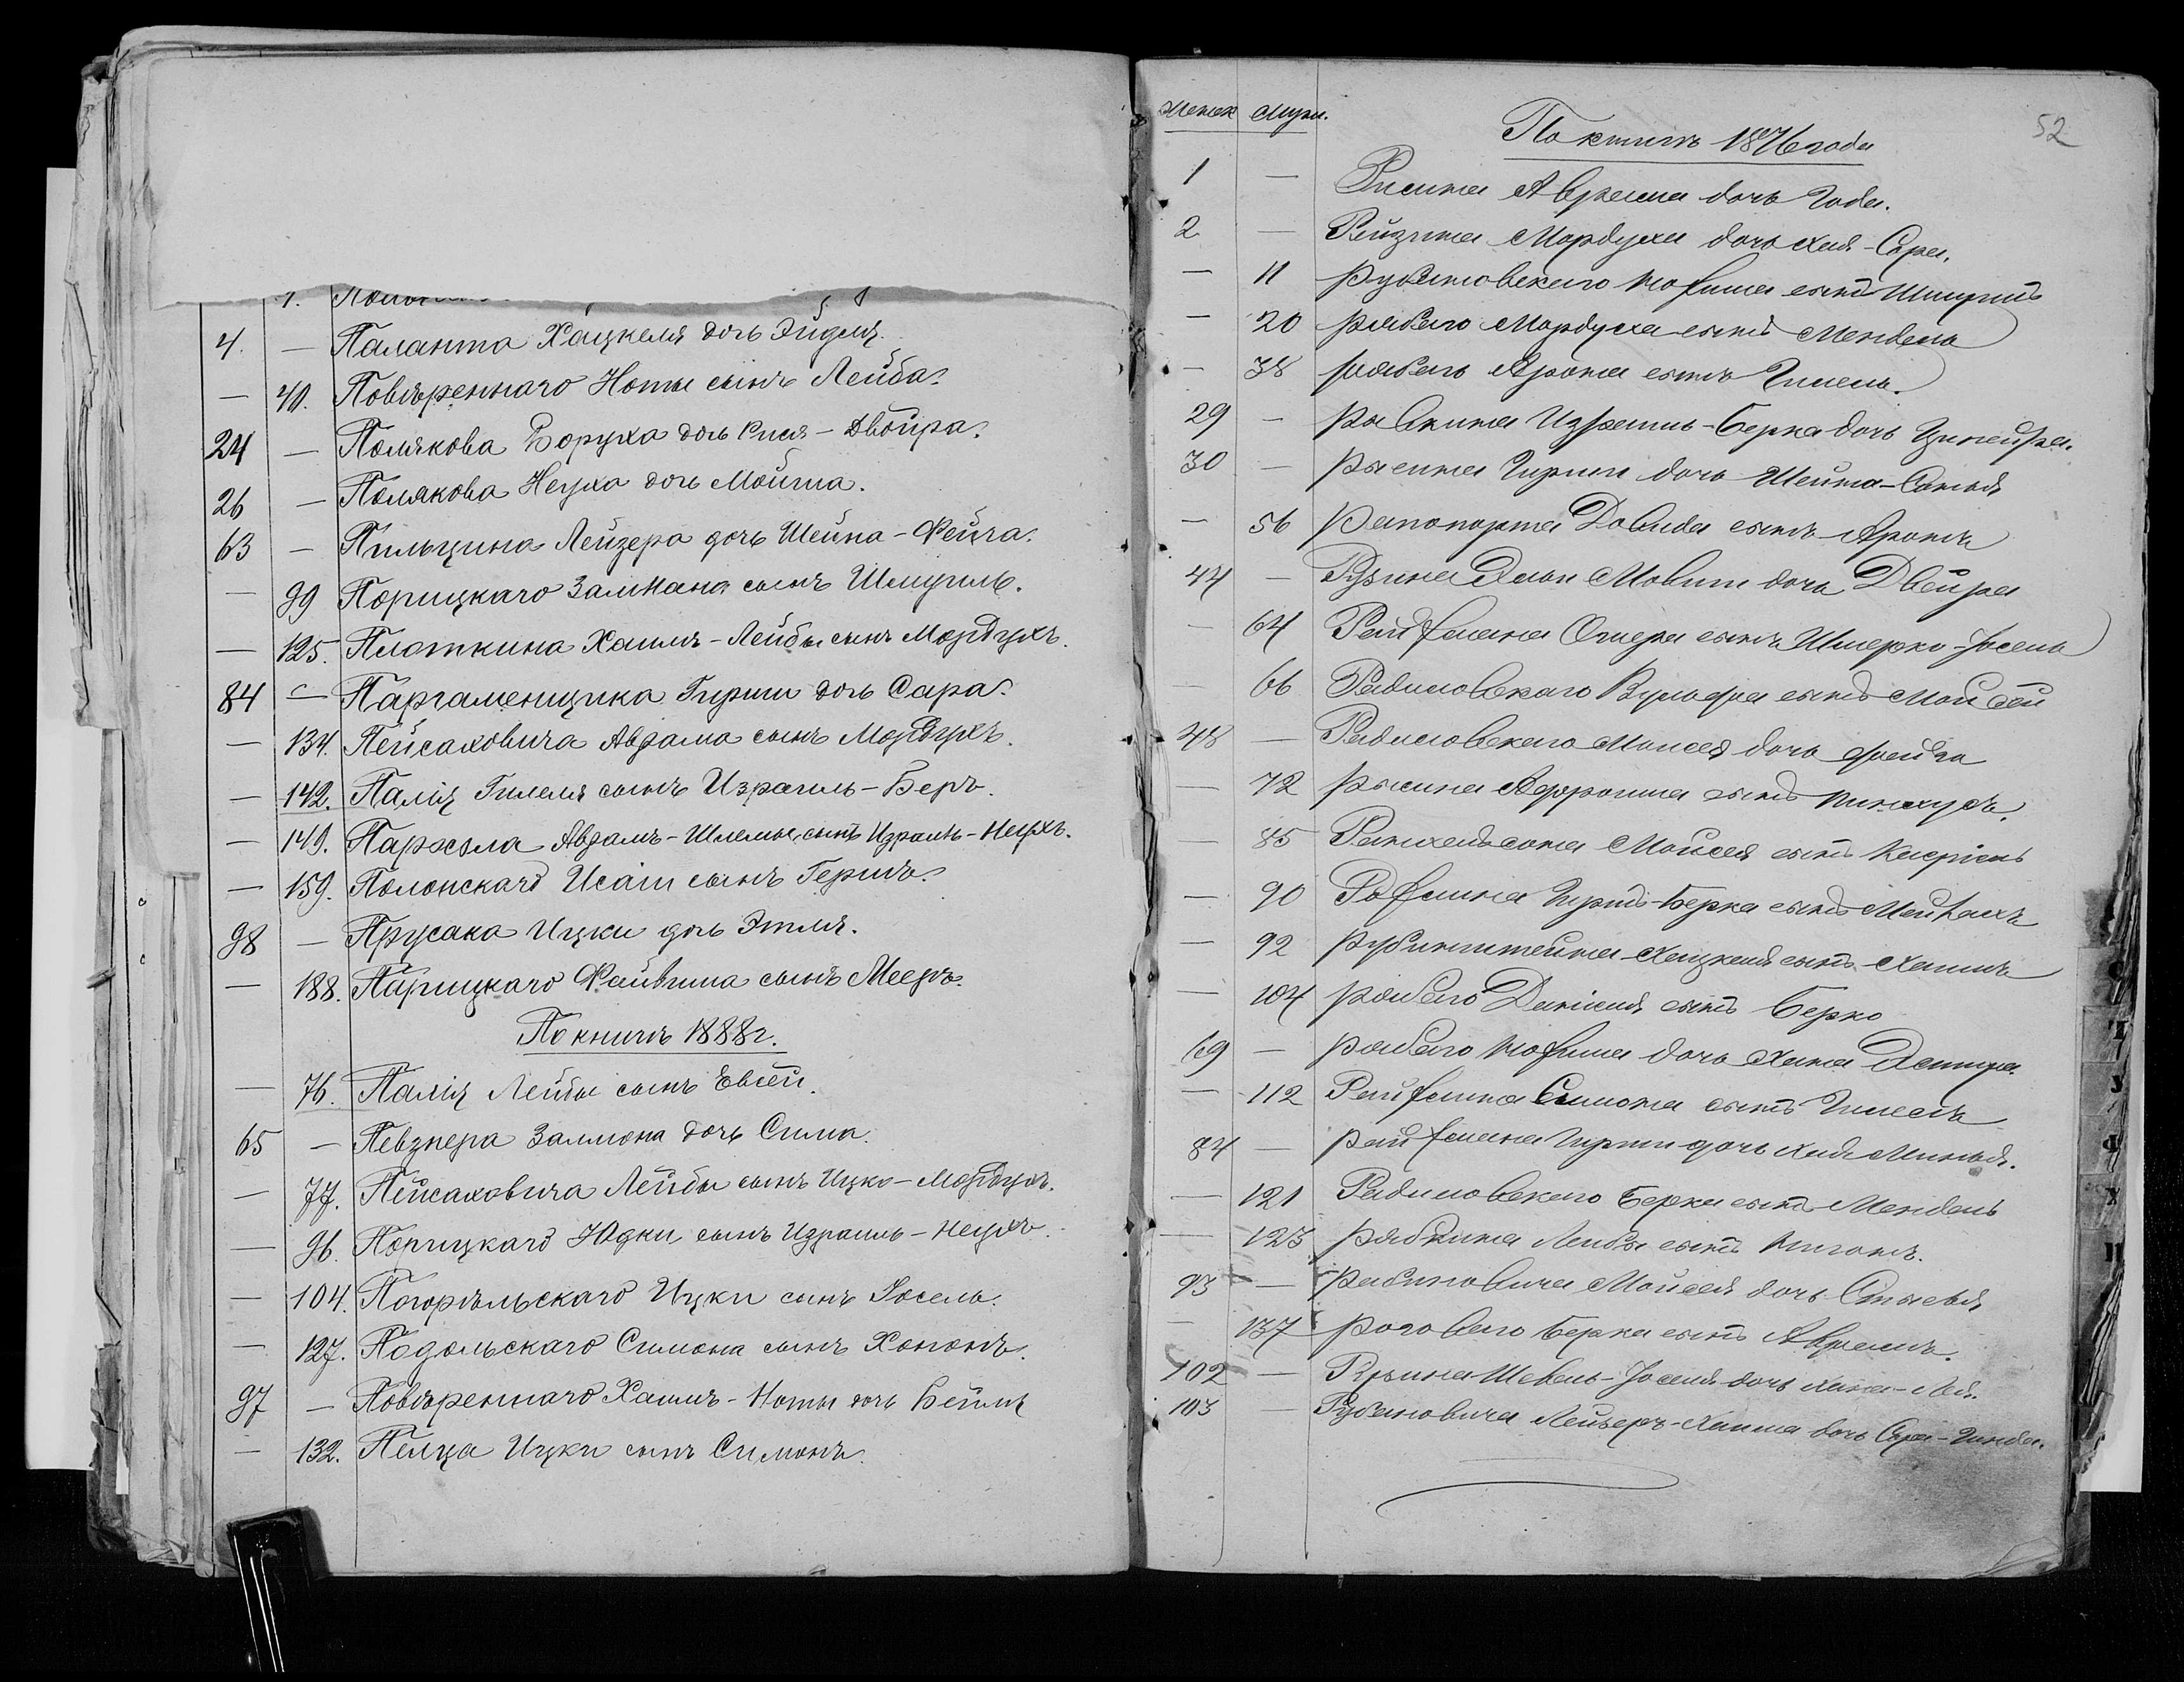 4. — Паланта Хацкеля дочь Эйдля.
— 40. Повѣреннаго Ноты сынъ Лейба.
24 — Полякова Боруха дочь Рися-Двойра.
26 — Полякова Неуха дочь
63 — Пильщина Лейзера дочь Шейна-Фейга.
— 99 Порицкаго Залмана сынъ Шмуиль.
— 125. Плоткина Хаимъ-Лейбы сынъ Мордухъ.
84 — Пархаменщика Гирши дочь Сара.
— 134. Пейсаховича Аврама сынъ Мордухъ.
— 142. Палій Гилеля сынъ Израиль-Беръ.
— 149. Аврамъ-Шлемы сынъ Израиль-Неухъ.
— 159. Полонскаго Исаіи сынъ Гершъ.
98 — Прусака Ицки дочь Этля.
— 188. Парицкаго Файвиша сынъ Мееръ.
По книгѣ 1888 г.
— 76. Палій Лейбы сынъ Евсей.
65 — Певзнера Залмона дочь Сима.
— 77. Пейсаховича Лейбы сынъ Ицко-Мордухъ.
— 96. Порицкаго Юдки сынъ Израиль-Неухъ.
— 104. Погорѣльскаго Ицки сынъ Іосель.
— 127. Подольскаго Симона сынъ Хононъ.
97 — Повѣреннаго Хаимъ-Ноты дочь Бейля
— 132. Пелца Ицки сынъ Симонъ.
Женск Мужс.
52
По книгѣ 1876 года
1 — Рисина Аврама дочь Года.
2 — Рейзина Мордуха дочь Хая-Сора.
— 11 Рубановскаго сынъ Шмуилъ
— 20 Рябаго Мордуха сынъ Мендель
— 38 Рябаго Арона сынъ Гилель.
29 — Рывкина Израиль-Берка дочь Ципейра.
30 — Рысина Гирши дочь Шейна-Соня
— 56 Рапопорта Довида сынъ Аронъ
44 — дочь Двейра
— 64 Райхмана сынъ Шмерко-Іосель
— 66 Радиловскаго Вульфа сынъ Мойсей
48 — Радиловскаго Моисея дочь Фейга
— 72 Рысина сынъ Пинхусъ.
— 85 Моисея сынъ Касріель
— 90 Гиршъ-Берка сынъ
— 92 Рубинштейна Хацкеля сынъ Хаимъ
— 104 Рябаго Даніила сынъ Берко
69 — Рябаго дочь Хана
— 112 Райхмана Симона сынъ Гилель
84 — Райхмана Гирши дочь Хая
— 121 Радиловскаго Берка сынъ Мендель
— 123 Рябкина Лейбы сынъ
93 — Рабиновича Мойсея дочь
— 137 Роговаго Берка сынъ Аврамъ.
102 — Шевель-Іоселя дочь Хана-Лея.
103 — Рубановича Лейзеръ-Хаима дочь Сора-Гинда.